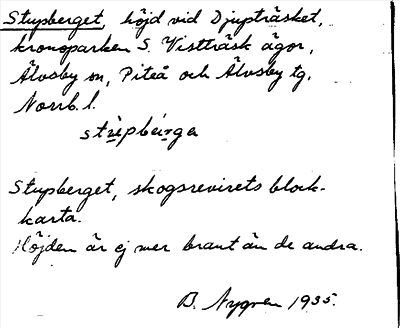 Stupberget, höjd vid Djupträsket,
kronoparken S. Vistträsk ägor,
Älvsby sn, Piteå och Älvsby tg.
Norrb. l.
stùpbèrga
Stupberget, skogsrevirets block-
karta.
Höjden är ej mer brant än de andra.
B. Nygren 1935.